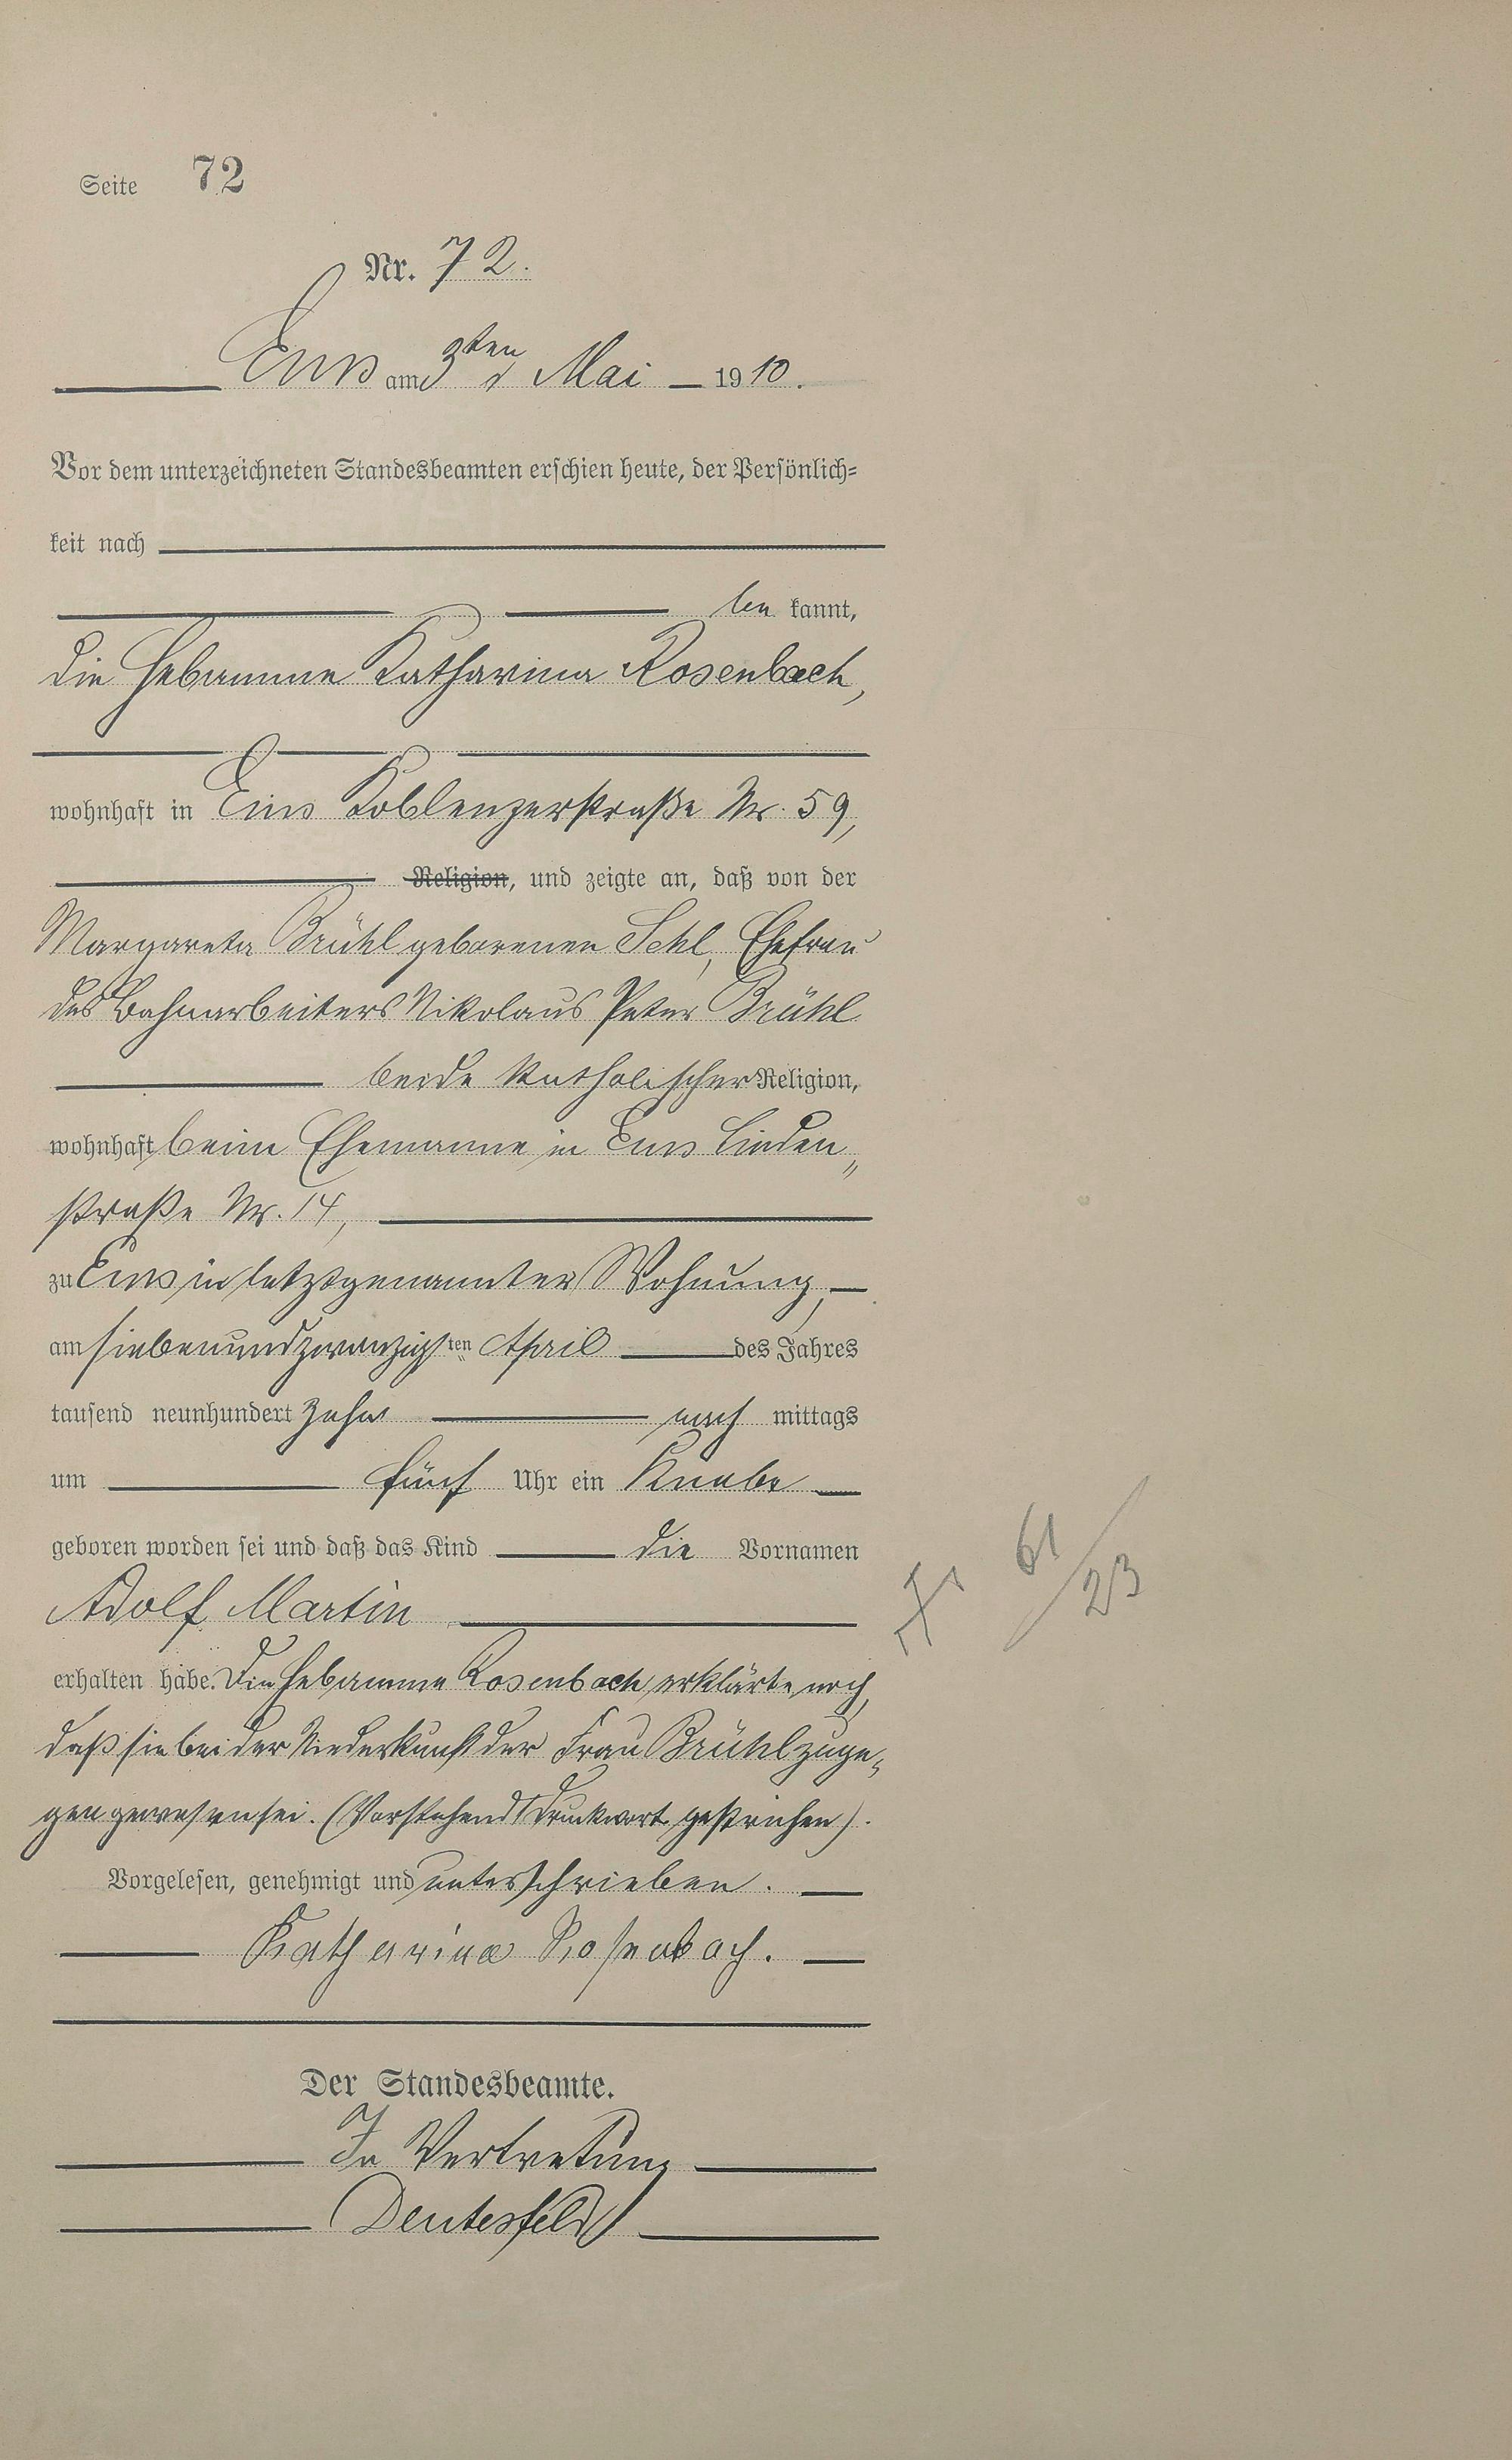 Seite 72
Nr. 72.
Ems am 3ten Mai 1910.
Vor dem unterzeichneten Standesbeamten erschien heute, der Persönlich=
keit nach
be kannt,
die Hebamme Katharina Rosenbach,
wohnhaft in Ems Koblenzerstraße Nr. 59,
Religion, und zeigte an, daß von der
Margareta Brühl geborenen Sehl, Ehefrau
des Bahnarbeiters Nikolaus Peter Brühl
beide katholischer Religion,
wohnhaft beim Ehemanne in Ems Linden„
straße Nr. 14,
zu Ems in letztgenannter Wohnung,
am siebenundzwanzigsten April des Jahres
tausend neunhundert zehn nach mittags
um fünf Uhr ein Knabe
geboren worden sei und daß das Kind die Vornamen
Adolf Martin
erhalten habe. Die Hebamme Rosenbach erklärte noch,
daß sie bei der Niederkunft der Frau Brühl zuge„
gen gewesen sei. (Vorstehend 1 Druckwort gestrichen).
Vorgelesen, genehmigt und unterschrieben.
Katharina Rosenbach.
Der Standesbeamte.
In Vertretung
Deutesfeld
61/23